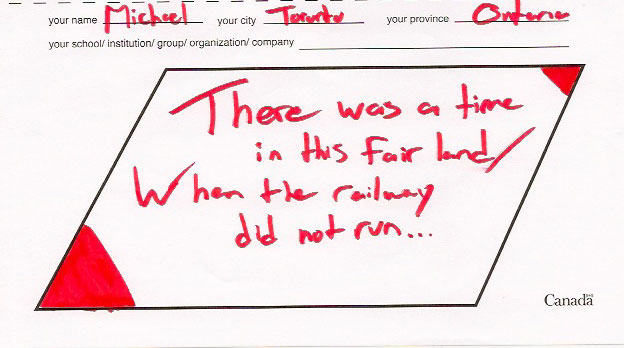 your name Michael your city Toronto your province Ontario
your school/ institution/ group/ organization/ company
There was a time
in this fair land/
When the railway
did not run...
Canada